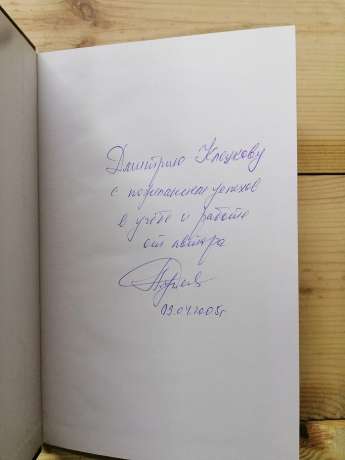 Дмитрию Клоцкову
с пожеланием успехов
в учёбе и работе
от автора
03.04.2005г